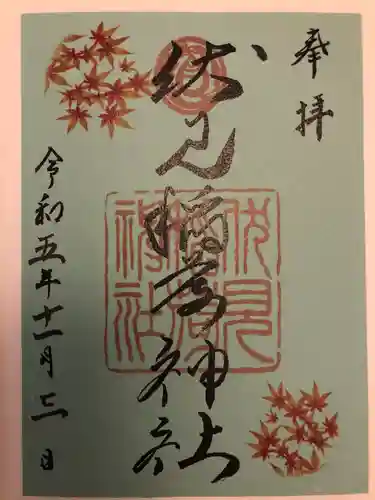 奉拝
伏見稲荷神社
伏見稲荷神社
令和五年十一月三日